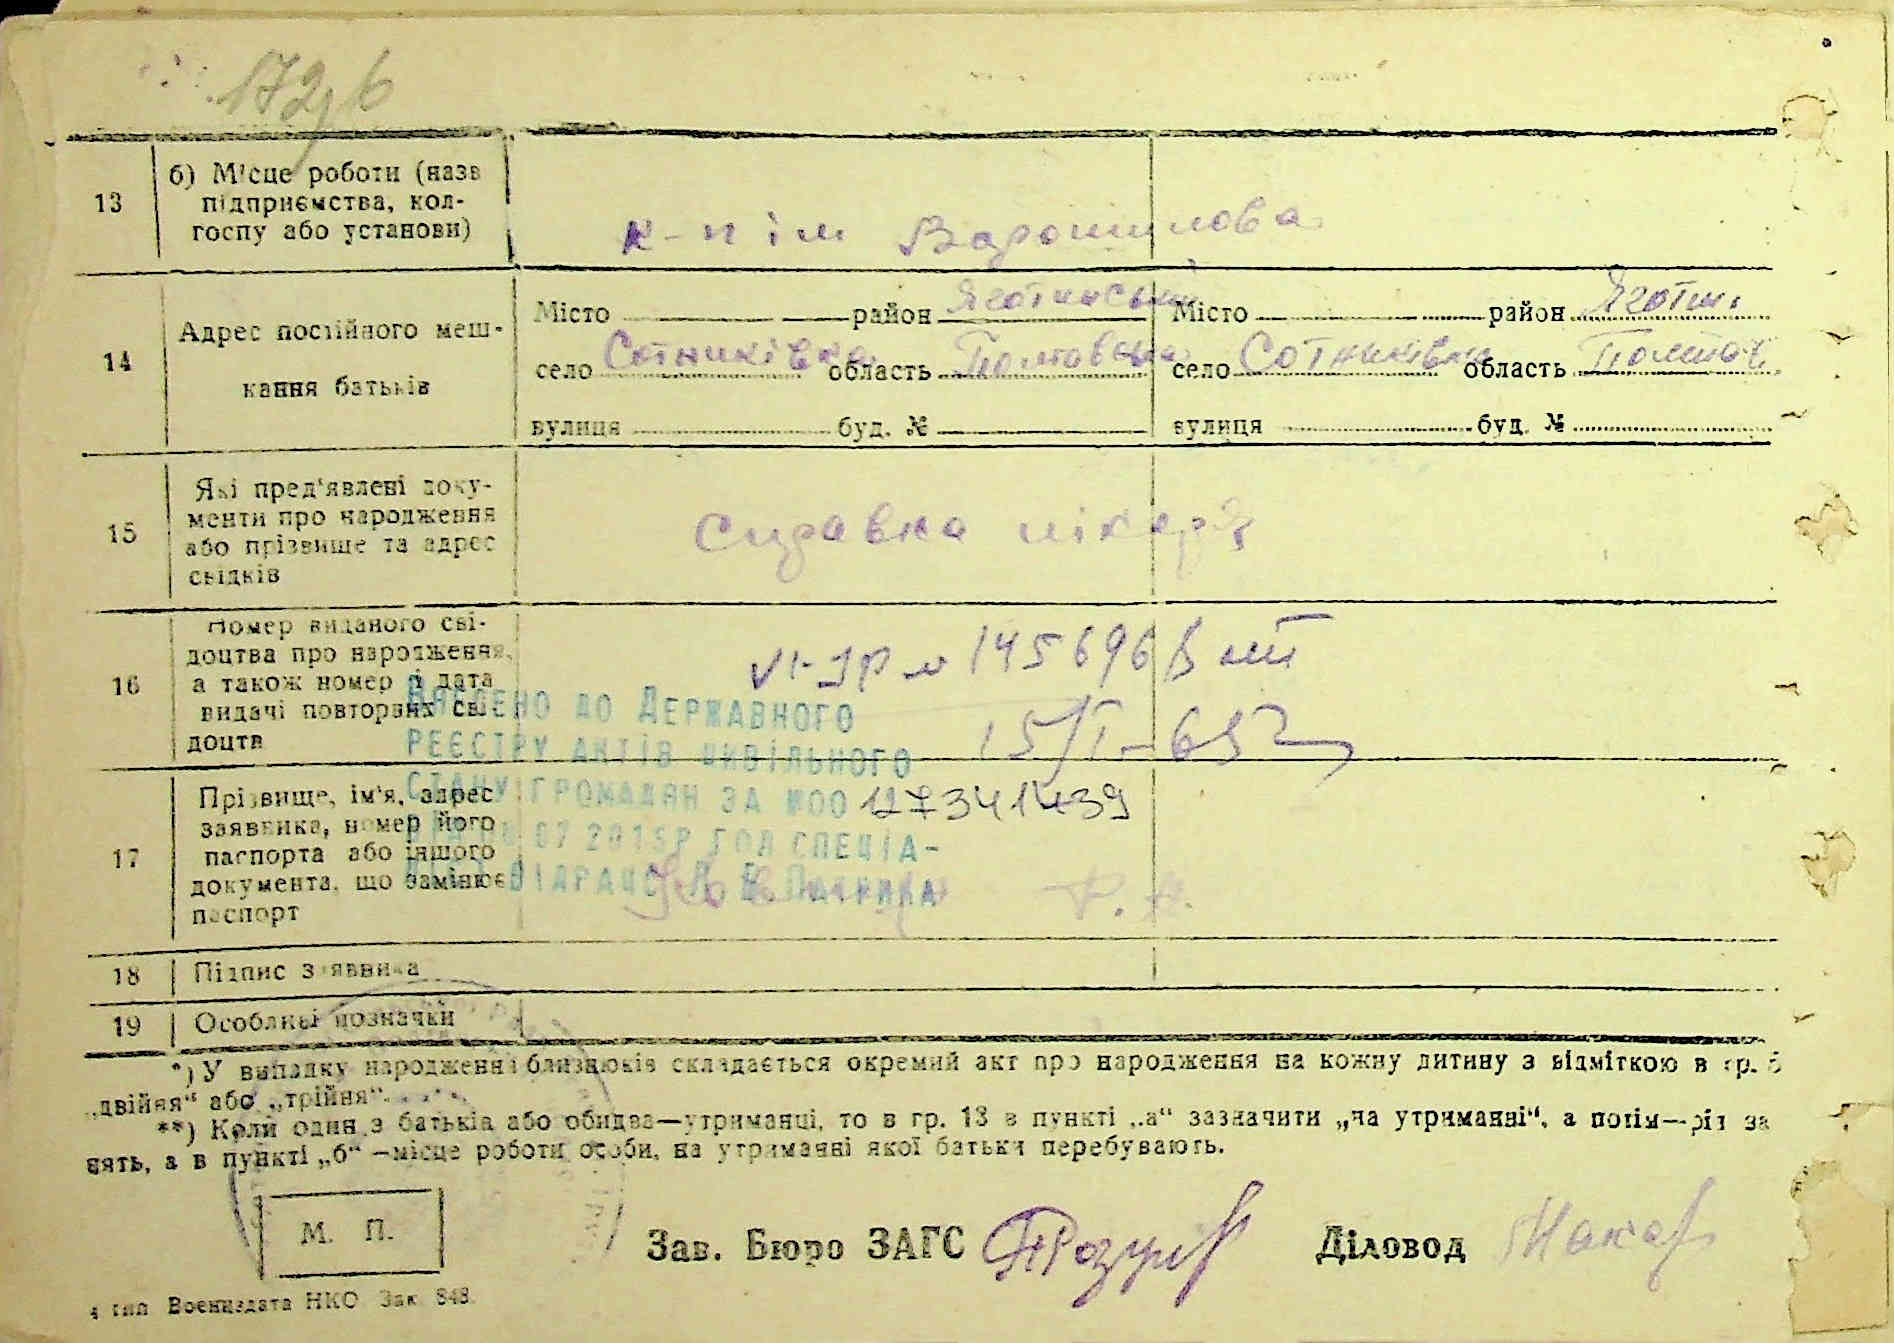 172,6
13
б) Місце роботи (назв
підприємства, кол-
госпу або установи)
к-п ім Варошилова
14
Адрес постійного меш-
кання батьків
Місто район Яготинський
село Сотниківка область Полтавська
вулиця буд. №
Місто район Яготин.
село Сотниківка область Полтав
вулиця буд. №
15
Які пред'явлені доку-
менти про народження
або прізвище та адрес
свідків
Справка лікаря
16
Номер виданого сві-
доцтва про народження,
а також номер і дата
видачі повторних сві-
доцтв
145696
15/І-65
ВНЕСЕНО ДО ДЕРЖАВНОГО
РЕЄСТРУ АКТІВ ЦИВІЛЬНОГО
СТАНУ ГРОМАДЯН ЗА №00 127341439
07 2015Р ГОЛ СПЕЦІА-
17
Прізвище, ім'я, адрес
заявника, номер його
паспорта або іншого
документа, що замінює
паспорт
18
Підпис заявника
19
Особливі позначки
*) У випадку народження близнюків складається окремий акт про народження на кожну дитину з відміткою в гр. 5
„двійня“ або „трійня“.
**) Коли один з батьків або обидва—утриманці, то в гр. 13 в пункті „а“ зазначити „на утриманні“, а потім—рід за
нять, а в пункті „б“ —місце роботи особи, на утриманні якої батьки перебувають.
М. П.
Зав. Бюро ЗАГС
Діловод
4 тип Воениздата НКО Зак. 848.